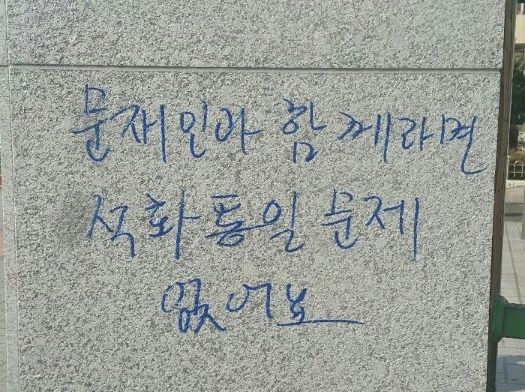 문재인아 함께라면
석화통일 문제
없어보